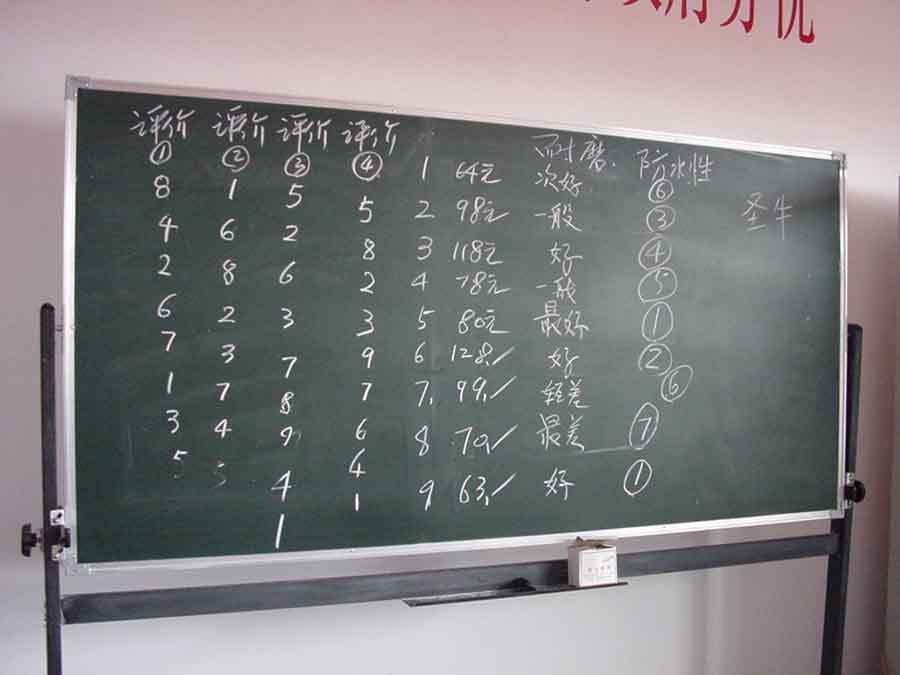 评价 评价 评价 评价 耐磨. 防水性
① ② ③ ④ 1 64元 次好 ⑥
8 1 5 5 2 98元 一般 ③ 圣牛
4 6 2 8 3 118元 好 ④
2 8 6 2 4 78元 一般 ⑤
6 2 3 3 5 80元 最好 ①
7 3 7 9 6 128, 好 ②
1 7 8 7 7, 99, 轻差 ⑥
3 4 9 6 8 70, 最差 ⑦
5 5 4 4 9, 63, 好 ①
1 1